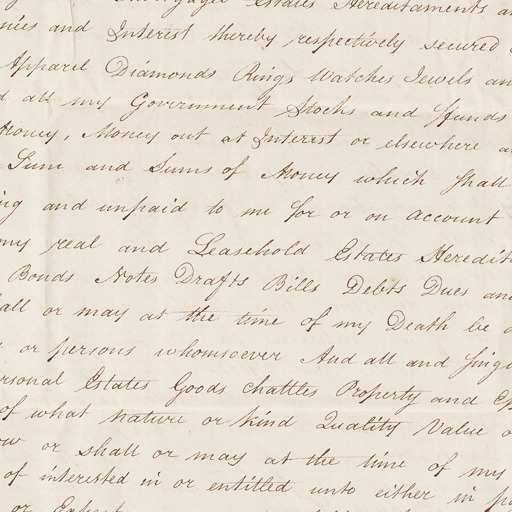 Mortgages Estates Hereditaments
and Interest thereby respectively secured
Apparel Diamonds Rings Watches Jewels an
d all my Government Stocks and ffunds
Money, Money out at Interest or elsewhere a
Sum and Sums of Money which shall
ing and unpaid to me for or on account
my real and Leasehold Estates Heredit
Bonds Notes Drafts Bills Debts Dues and
all or may at the time of my Death be
or persons whomsoever And all and singu
ersonal Estates Goods chattles Property and E
of what nature or kind Quality Value o
ow or shall or may at the time of my
of interested in or entitled unto either in p
or Expect